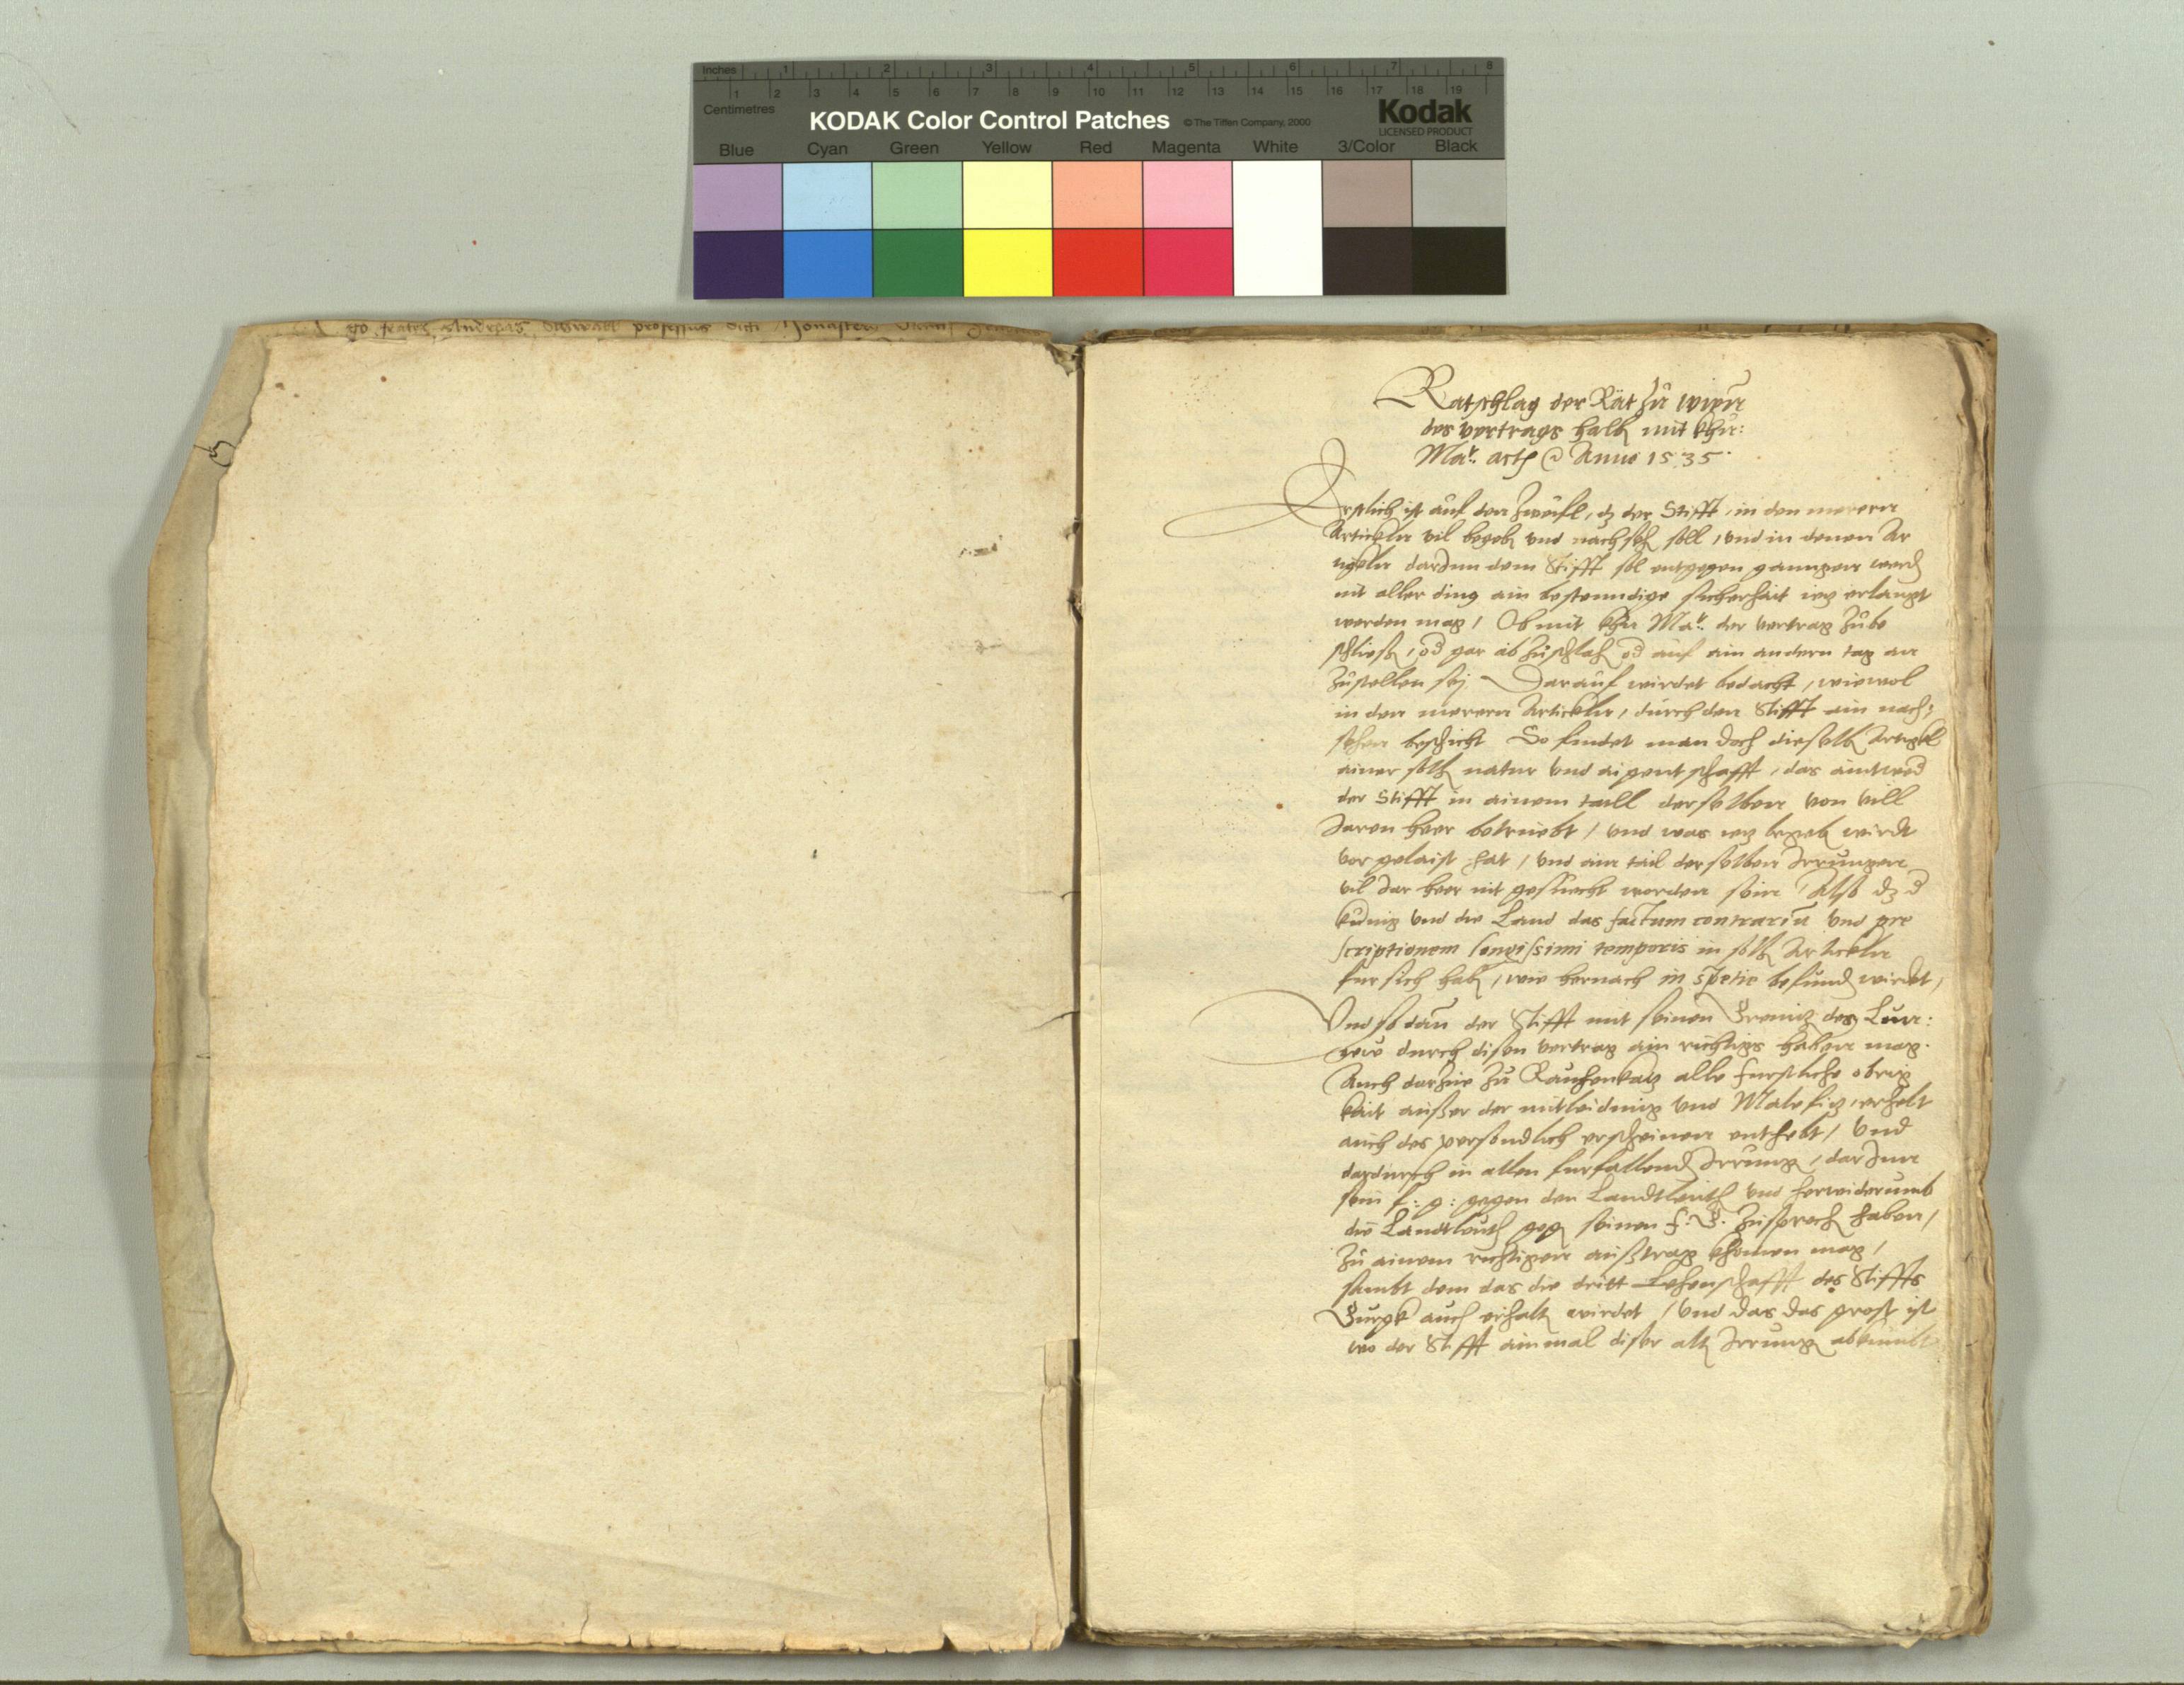 Inches 1 2 3 4 5 6 7 8
1 2 3 4 5 6 7 8 9 10 11 12 13 14 15 16 17 18 19
Centimetres
KODAK Color Control Patches © The Tiffen Company, 2000
Kodak
LICENSED PRODUCT
Blue Cyan Green Yellow Red Magenta White 3/Color Black
go frater Andreas professus
Ratschlag der Rät zu Wienn
des vertrags halb mit khu:
Mat. Anno 1535
Erstlich ist auf den Zweifl, dz der Stifft, in den merern
Artickln vil begeb und nachseh soll, und in denen Ar
tigkln darInn dem Stifft sol entgegen ganngen werd
nit aller ding ain bestenndige sicherhait iez erlangt
werden mag, Ob mit khu Mat. der vertrag zube
schliess, od gar abzuschlah od auf ain andern tag an
zustellen sej Darauf wirdet bedacht, wiewol
in den merern Articklen, durch den Stifft ain nach:
sehen beschicht So findet man doch dieselb Artigkl
ainer solh natur und aigentschafft, das aintwed
der Stifft in ainem taill derselben von vill
Jaren heer betruebt, und was iez begeb wirdt
vor gelaist hat, und ain tail derselben Irrungen
vil Jar heer nit gesuecht worden sein, Also dz d
kunig und die Land das factum contrariu und pre
scriptionem longissimi temporis in solh Articklen
fur sich hab, wie hernach in spetie befund wirdet,
Und so dan der Stifft mit seinen Gremiz des Lun:
gew durch disen vertrag ain richtigs haben mag.
Auch darzue zu Rauhenkaz alle furstliche obrig
kait ausser der mitleidung und Malefiz, erhelt
auch des persondlich erscheinen enthebt, Und
dardurch in allen furfallend Irrung, darInn
sein f: g: gegen den Landtleuth und herwiderumb
die Landtleuth geg seinen f: G. zusprech haben,
zu ainem richtigen ausstrag khomen mag,
sambt dem das die dritt Lehenschafft des Stiffts
Gurgk auch erhalt wirdet, Und das das grost ist
wo der Stifft ainmal diser alt Irrung abkumbt